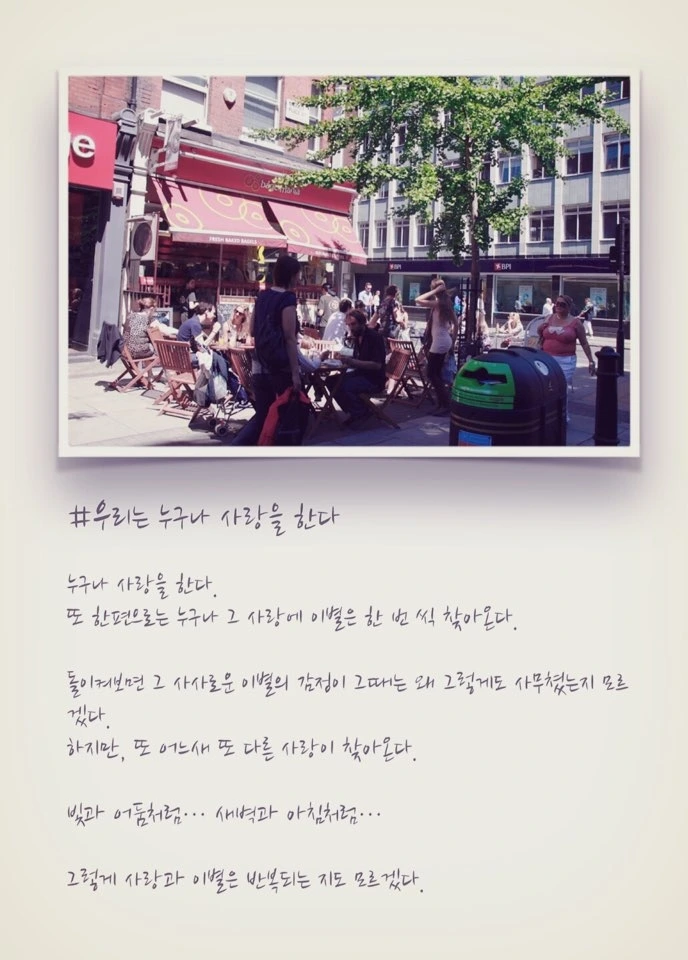 e
bagelmania
FRESH BAKED BAGELS
BPI
BPI
#우리는 누구나 사랑을 한다
누구나 사랑을 한다.
또 한편으로는 누구나 그 사랑에 이별은 한 번 씩 찾아온다.
돌이켜보면 그 사사로운 이별의 감정이 그때는 왜 그렇게도 사무쳤는지 모르
겠다.
하지만, 또 어느새 또 다른 사랑이 찾아온다.
빛과 어둠처럼... 새벽과 아침처럼...
그렇게 사랑과 이별은 반복되는 지도 모르겠다.